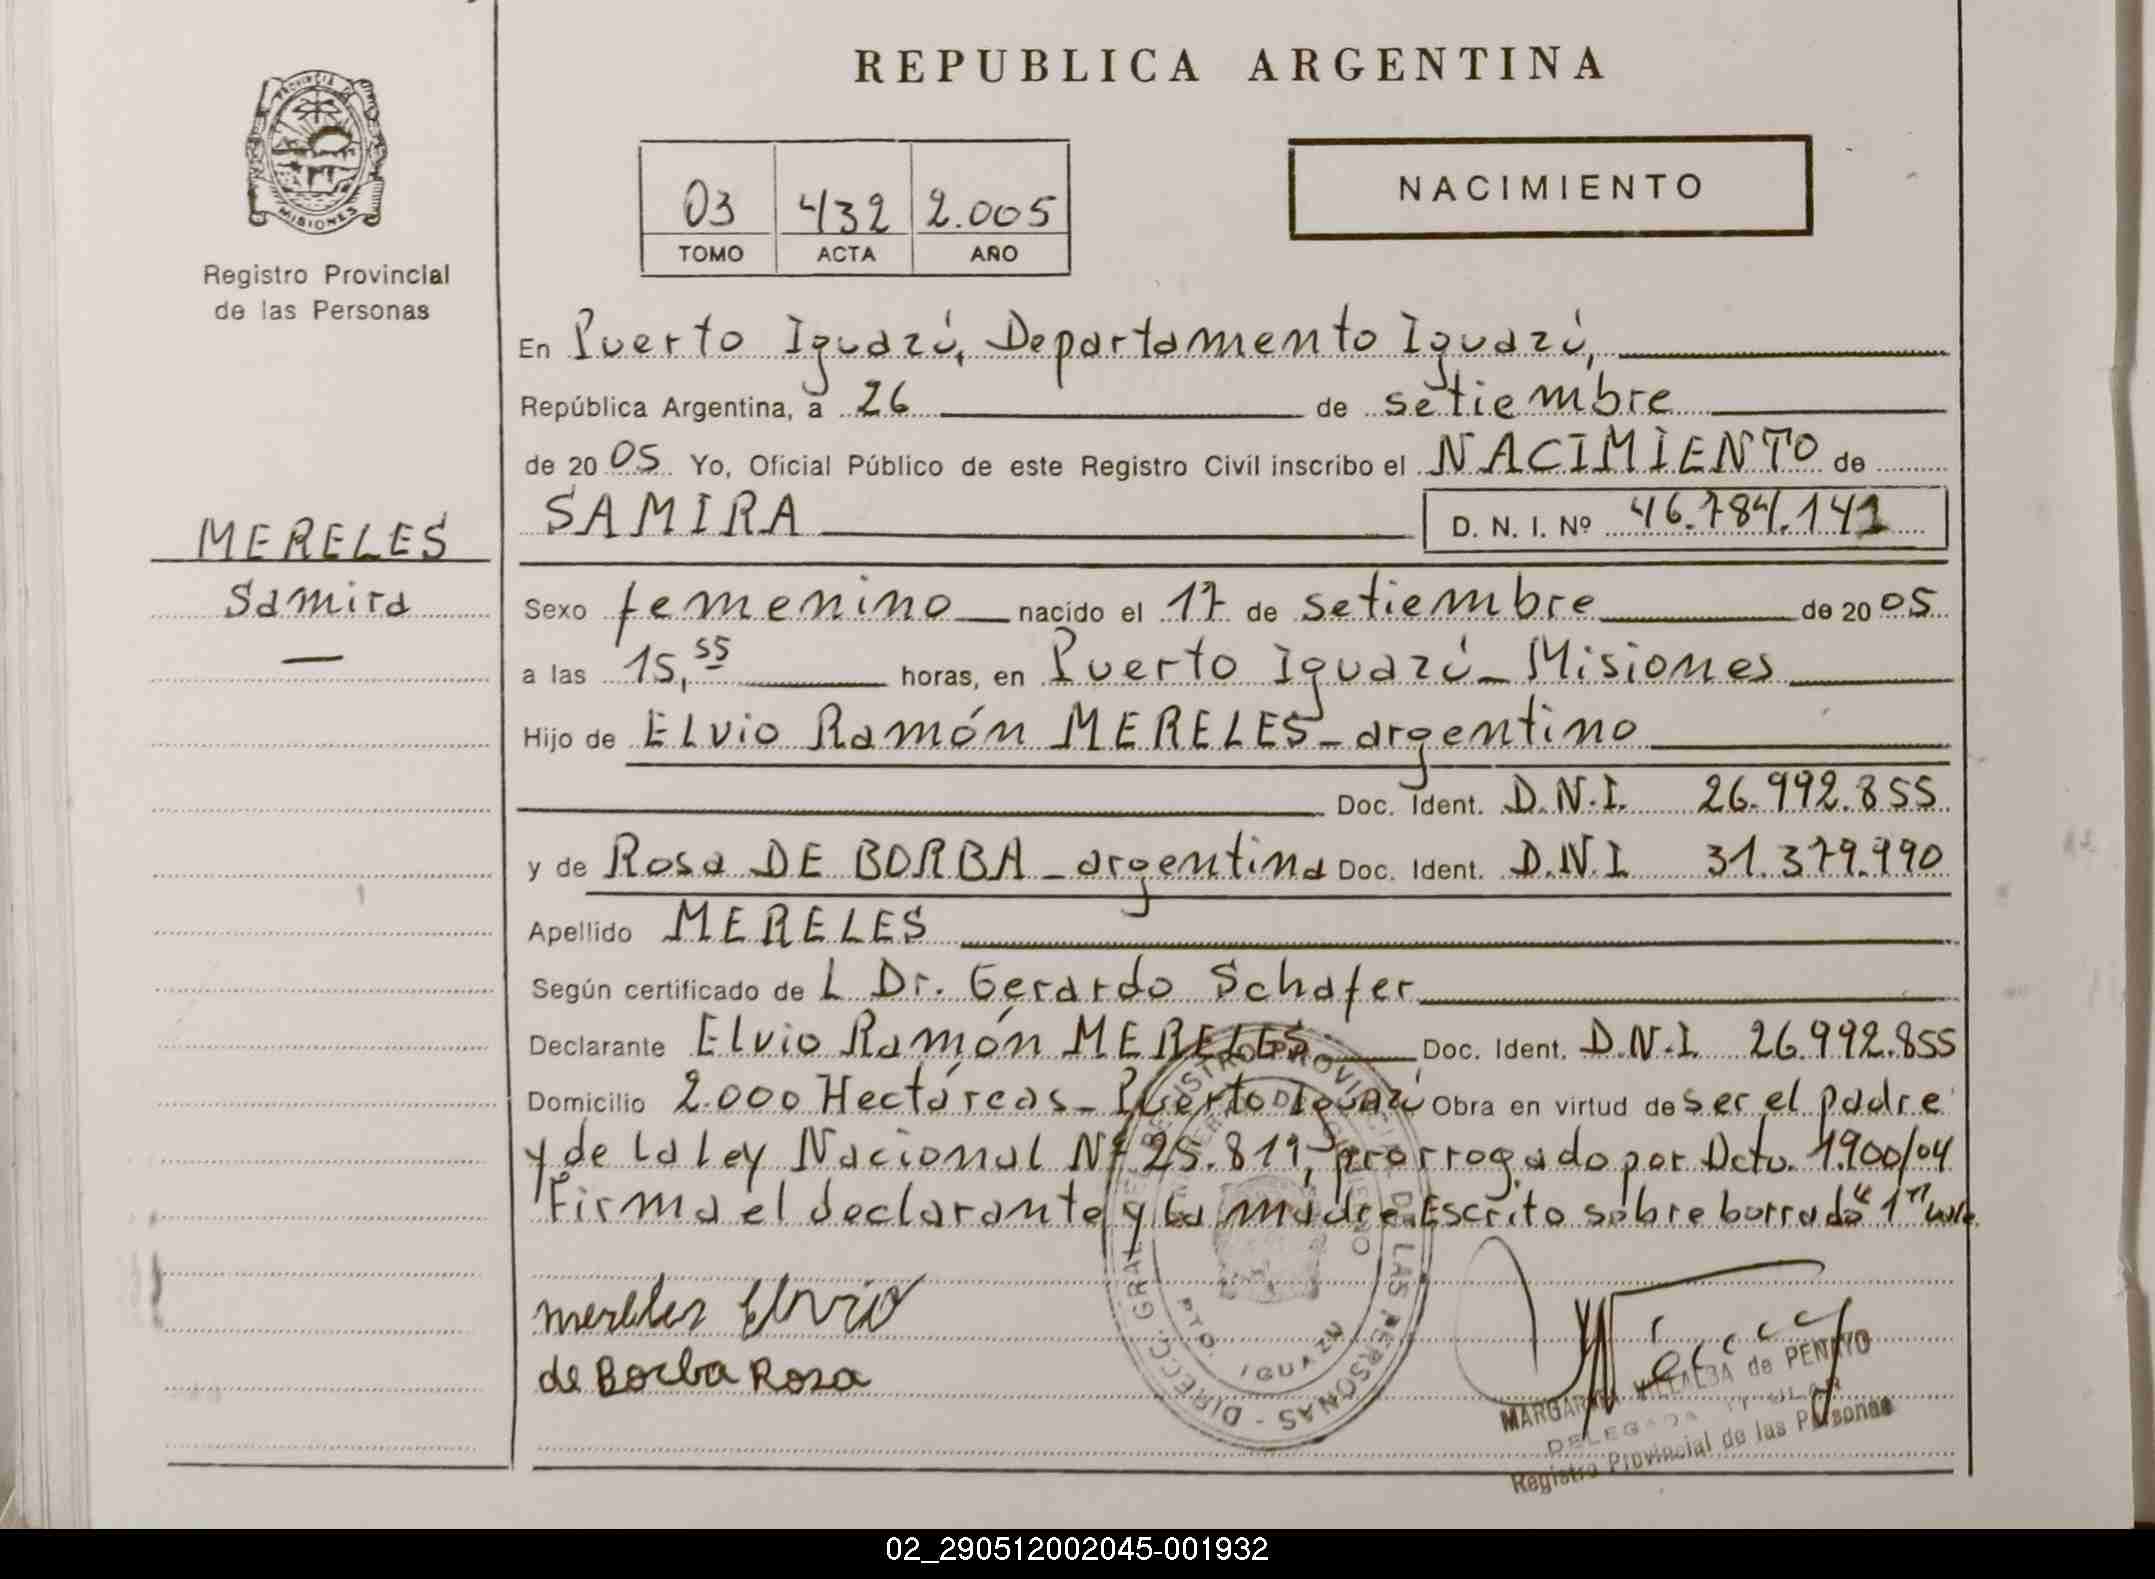 REPUBLICA ARGENTINA
PROVINCIA DE MISIONES
Registro Provincial
de las Personas
03 432 2.005
TOMO ACTA AÑO
NACIMIENTO
En Puerto Iguazú, Departamento Iguazú,
República Argentina, a 26 de setiembre
de 20 05 Yo, Oficial Público de este Registro Civil inscribo el NACIMIENTO de
SAMIRA D. N. I. Nº 46.784.141
MERELES
Samira
Sexo femenino nacido el 17 de setiembre de 20 05
a las 15,55 horas, en Puerto Iguazú - Misiones
Hijo de ELvio Ramón MERELES - argentino
Doc. Ident. D.N.I. 26.992.855
y de Rosa DE BORBA - argentina Doc. Ident. D.N.I. 31.379.990
Apellido MERELES
Según certificado de L Dr. Gerardo Schafer
Declarante Elvio Ramón MERELES Doc. Ident. D.N.I. 26.992.855
Domicilio 2.000 Hectáreas - Puerto Iguazú Obra en virtud de ser el padre
y de la Ley Nacional Nº 25.819, prorrogado por Dcto. 1.900/04
Firma el declarante y la madre. Escrito sobre borrado "1" vale.
mereles Elvio
de Borba Rosa
DIRECC. GRAL. DEL REGISTRO PROVINCIAL DE LAS PERSONAS
PTO. IGUAZU
MARGARITA VILLALBA de PENAYO
DELEGADA TITULAR
Registro Provincial de las Personas
02_290512002045-001932